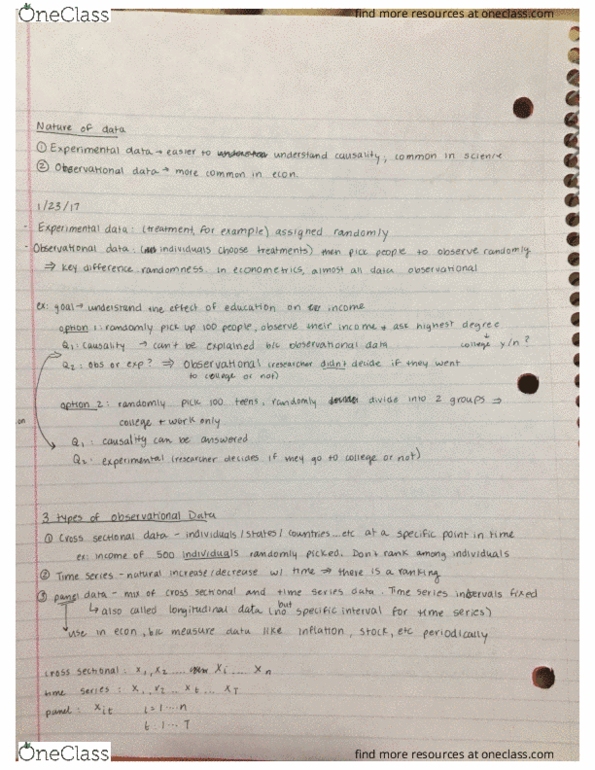 OneClass find more resources at oneclass.com
Nature of data
① Experimental data → easier to understand causality, common in science
② Observational data → more common in econ.
1/23/17
- Experimental data: (treatment, for example) assigned randomly
- Observational data: (individuals choose treatments) then pick people to observe randomly.
⇒ key difference: randomness. In econometrics, almost all data observational
ex: goal → understand the effect of education on income
option 1: randomly pick up 100 people, observe their income + ask highest degree
Q1: causality → can't be explained b/c observational data college y/n?
Q2: obs or exp? ⇒ observational (researcher didn't decide if they went
to college or not)
option 2: randomly pick 100 teens, randomly divide into 2 groups ⇒
on college + work only
Q1: causality can be answered
Q2: experimental (researcher decides if they go to college or not)
3 types of observational Data
① Cross sectional data - individuals/states/countries...etc at a specific point in time
ex: income of 500 individuals randomly picked. Don't rank among individuals
② Time series - natural increase/decrease w/ time ⇒ there is a ranking
③ panel data - mix of cross sectional and time series data. Time series intervals fixed
↳ also called longitudinal data (no but specific interval for time series)
↓ use in econ, b/c measure data like inflation, stock, etc periodically
cross sectional: x1, x2 .... xi .... xn
time series: x1, x2 ... xt ... xT
panel: xit i=1...n
t:1...T
OneClass find more resources at oneclass.com